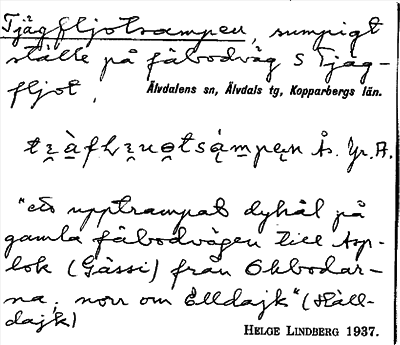 Tjägfljotsampen, sumpigt
ställe på fäbodväg S Tjäg-
fljot.
Älvdalens sn, Älvdals tg, Kopparbergs län.
Ås. Yr. A.
"ett upptrampat dyhål på
gamla fäbodvägen till Asp-
lok (Gässi) från Okbodar-
na; norr om Älldajk" (Häll-
dajk)
HELGE LINDBERG 1937.